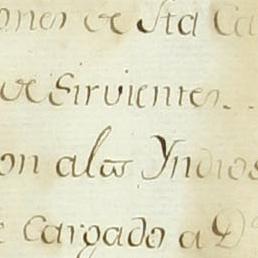 ones de Sta Ca
de Sirvientes..
on alos Yndios
e cargado a Dn